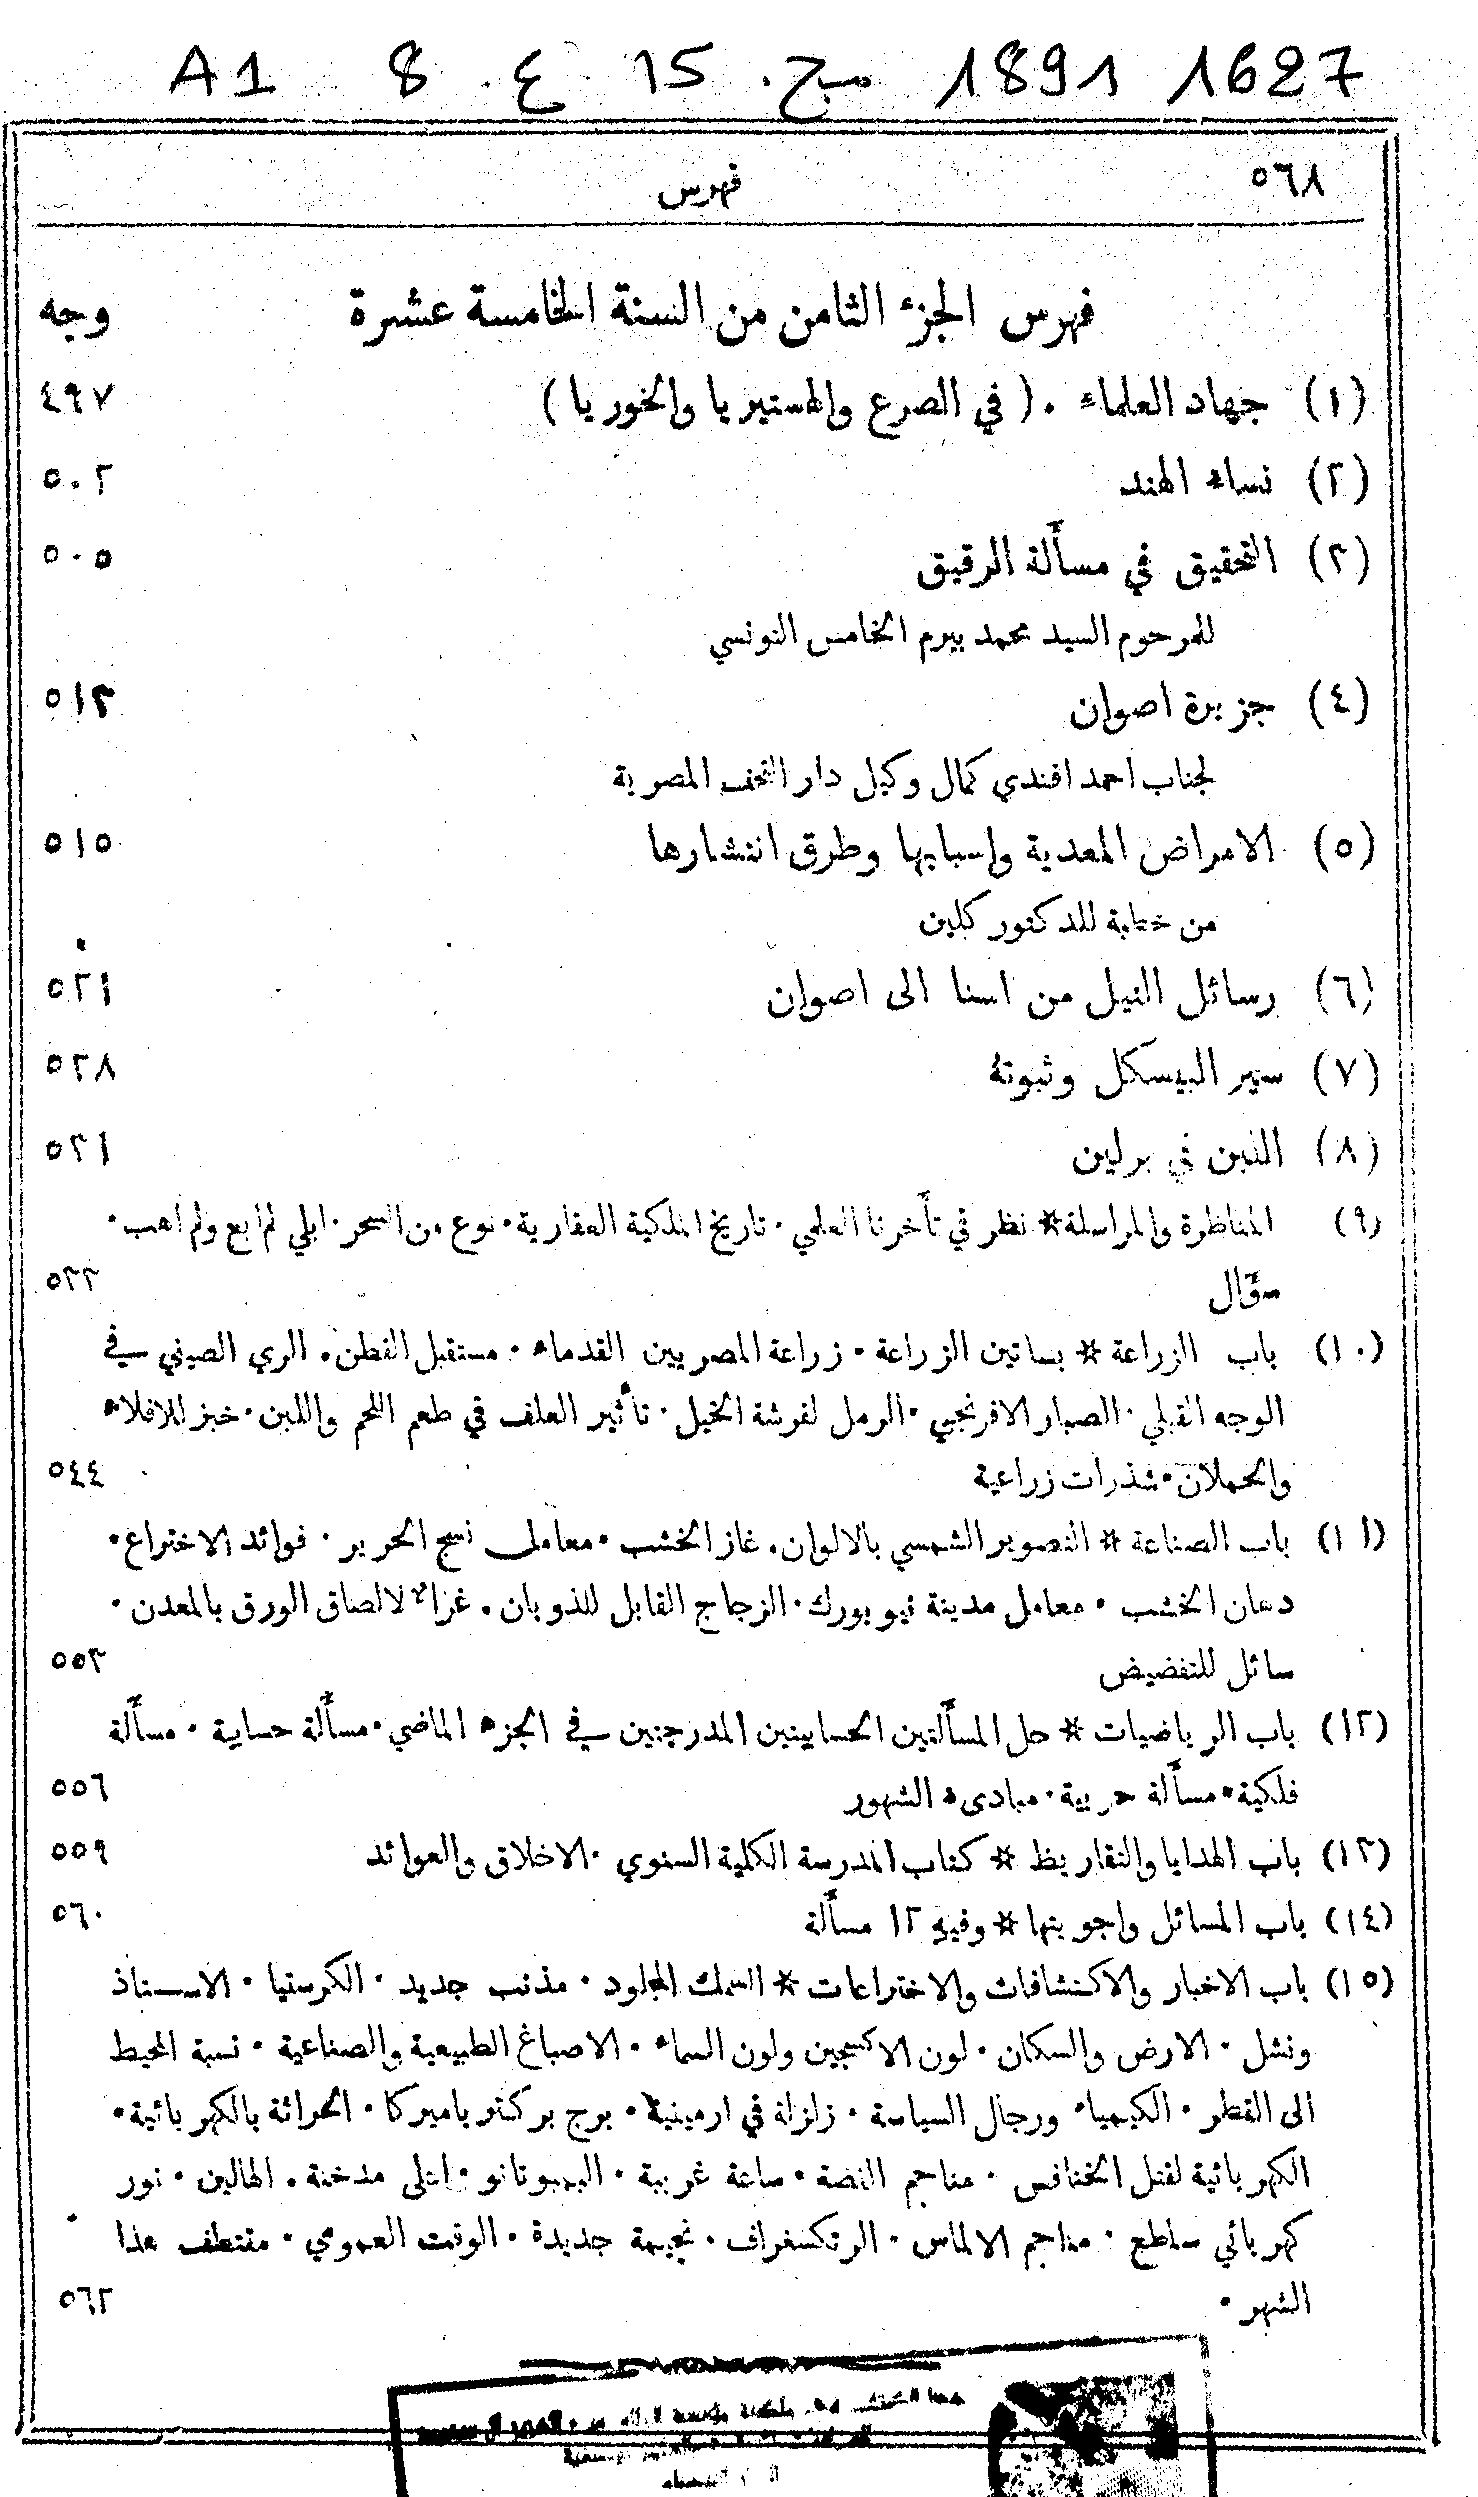 A1 8 ع. 15 مج. 1891 1627
٥٦٨ فهرس
فهرس الجزء الثامن من السنة الخامسة عشرة وجه
(١) جهاد العلماء . (في الصرع والهستيريا والخوريا) ٤٩٧
(٢) نساء الهند ٥٠٢
(٣) التحقيق في مسألة الرقيق ٥٠٥
للمرحوم السيد محمد بيرم الخامس التونسي
(٤) جزيرة اصوان ٥١٣
لجناب احمد افندي كمال وكيل دار التحف المصرية
(٥) الامراض المعدية واسبابها وطرق انتشارها ٥١٥
من خطبة للدكتور كلين
(٦) رسائل النيل من اسنا الى اصوان ٥٢١
(٧) سير البيسكل وثبوته ٥٢٨
(٨) التبن في برلين ٥٣١
(٩) المناظرة والمراسلة * نظر في تأخرنا العلمي . تاريخ الملكية العقارية . نوع من السحر . ابلي لم ابع ولم اهب .
سؤال ٥٣٣
(١٠) باب الزراعة * بساتين الزراعة . زراعة المصريين القدماء . مستقبل القطن . الري الصيني في
الوجه القبلي . الصبار الافرنجي . الرمل لفرشة الخيل . تأثير العلف في طعم اللحم واللبن . خبز للافلاء
والحملان . شذرات زراعية ٥٤٤
(١١) باب الصناعة * التصوير الشمسي بالالوان . غاز الخشب . معامل نسج الحرير . فوائد الاختراع .
دهان الخشب . معامل مدينة نيويورك . الزجاج القابل للذوبان . غراء لالصاق الورق بالمعدن .
سائل للتفضيض ٥٥٣
(١٢) باب الرياضيات * حل المسألتين الحسابيتين المدرجتين في الجزء الماضي . مسألة حسابية . مسألة
فلكية . مسألة حربية . مبادىء الشهور ٥٥٦
(١٣) باب الهدايا والتقاريظ * كتاب المدرسة الكلية السنوي . الاخلاق والعوائد ٥٥٩
(١٤) باب المسائل واجوبتها * وفيه ١٢ مسألة ٥٦٠
(١٥) باب الاخبار والاكتشافات والاختراعات * السمك المجلود . مذنب جديد . الكرستيا . الاستاذ
ونشل . الارض والسكان . لون الاكسجين ولون السماء . الاصباغ الطبيعية والصناعية . نسبة المحيط
الى القطر . الكيمياء ورجال السياسة . زلزلة في ارمينية . برج بركتر باميركا . الحراثة بالكهربائية .
الكهربائية لقتل الخنافس . مناجم الفضة . ساعة غريبة . البمبوتانو . اعلى مدخنة . الهالين . نور
كهربائي ساطع . مناجم الالماس . الرتكسغراف . نجيمة جديدة . الوقت العمومي . مقتطف هذا
الشهر . ٥٦٢